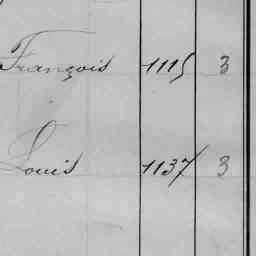 François 1115 3
Louis 1137 3